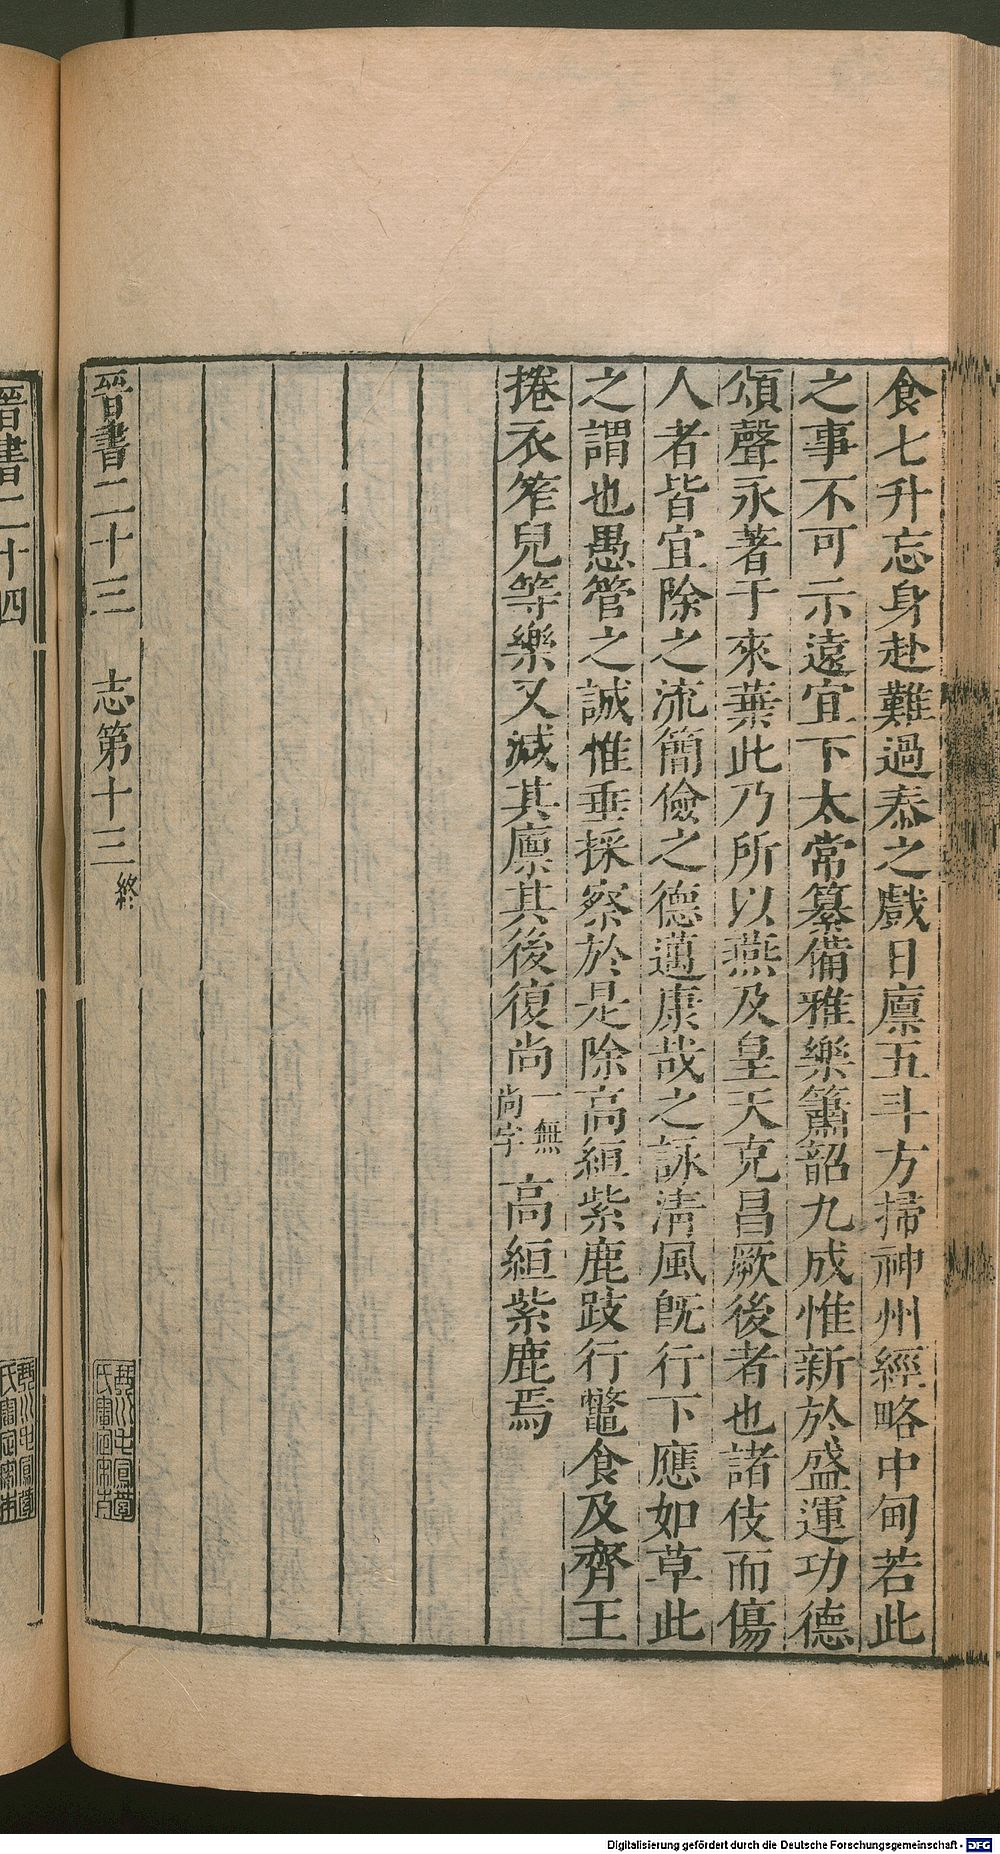 食七升忘身赴難過泰之戲日廪五斗方掃神州經略中甸若此
之事不可示遠宜下太常纂備雅樂簫韶九成惟新於盛運功德
頌聲永著于來葉此乃所以燕及皇天克昌厥後者也諸伎而傷
人者皆宜除之流簡儉之德邁康哉之詠清風旣行下應如草此
之謂也愚管之誠惟垂採察於是除高絙紫鹿跂行鼈食及齊王
捲衣笮兒等樂又減其廪其後復尚一無尚字高絙紫鹿焉
晉書二十三 志第十三終
晉書二十四
Digitalisierung gefördert durch die Deutsche Forschungsgemeinschaft - DFG